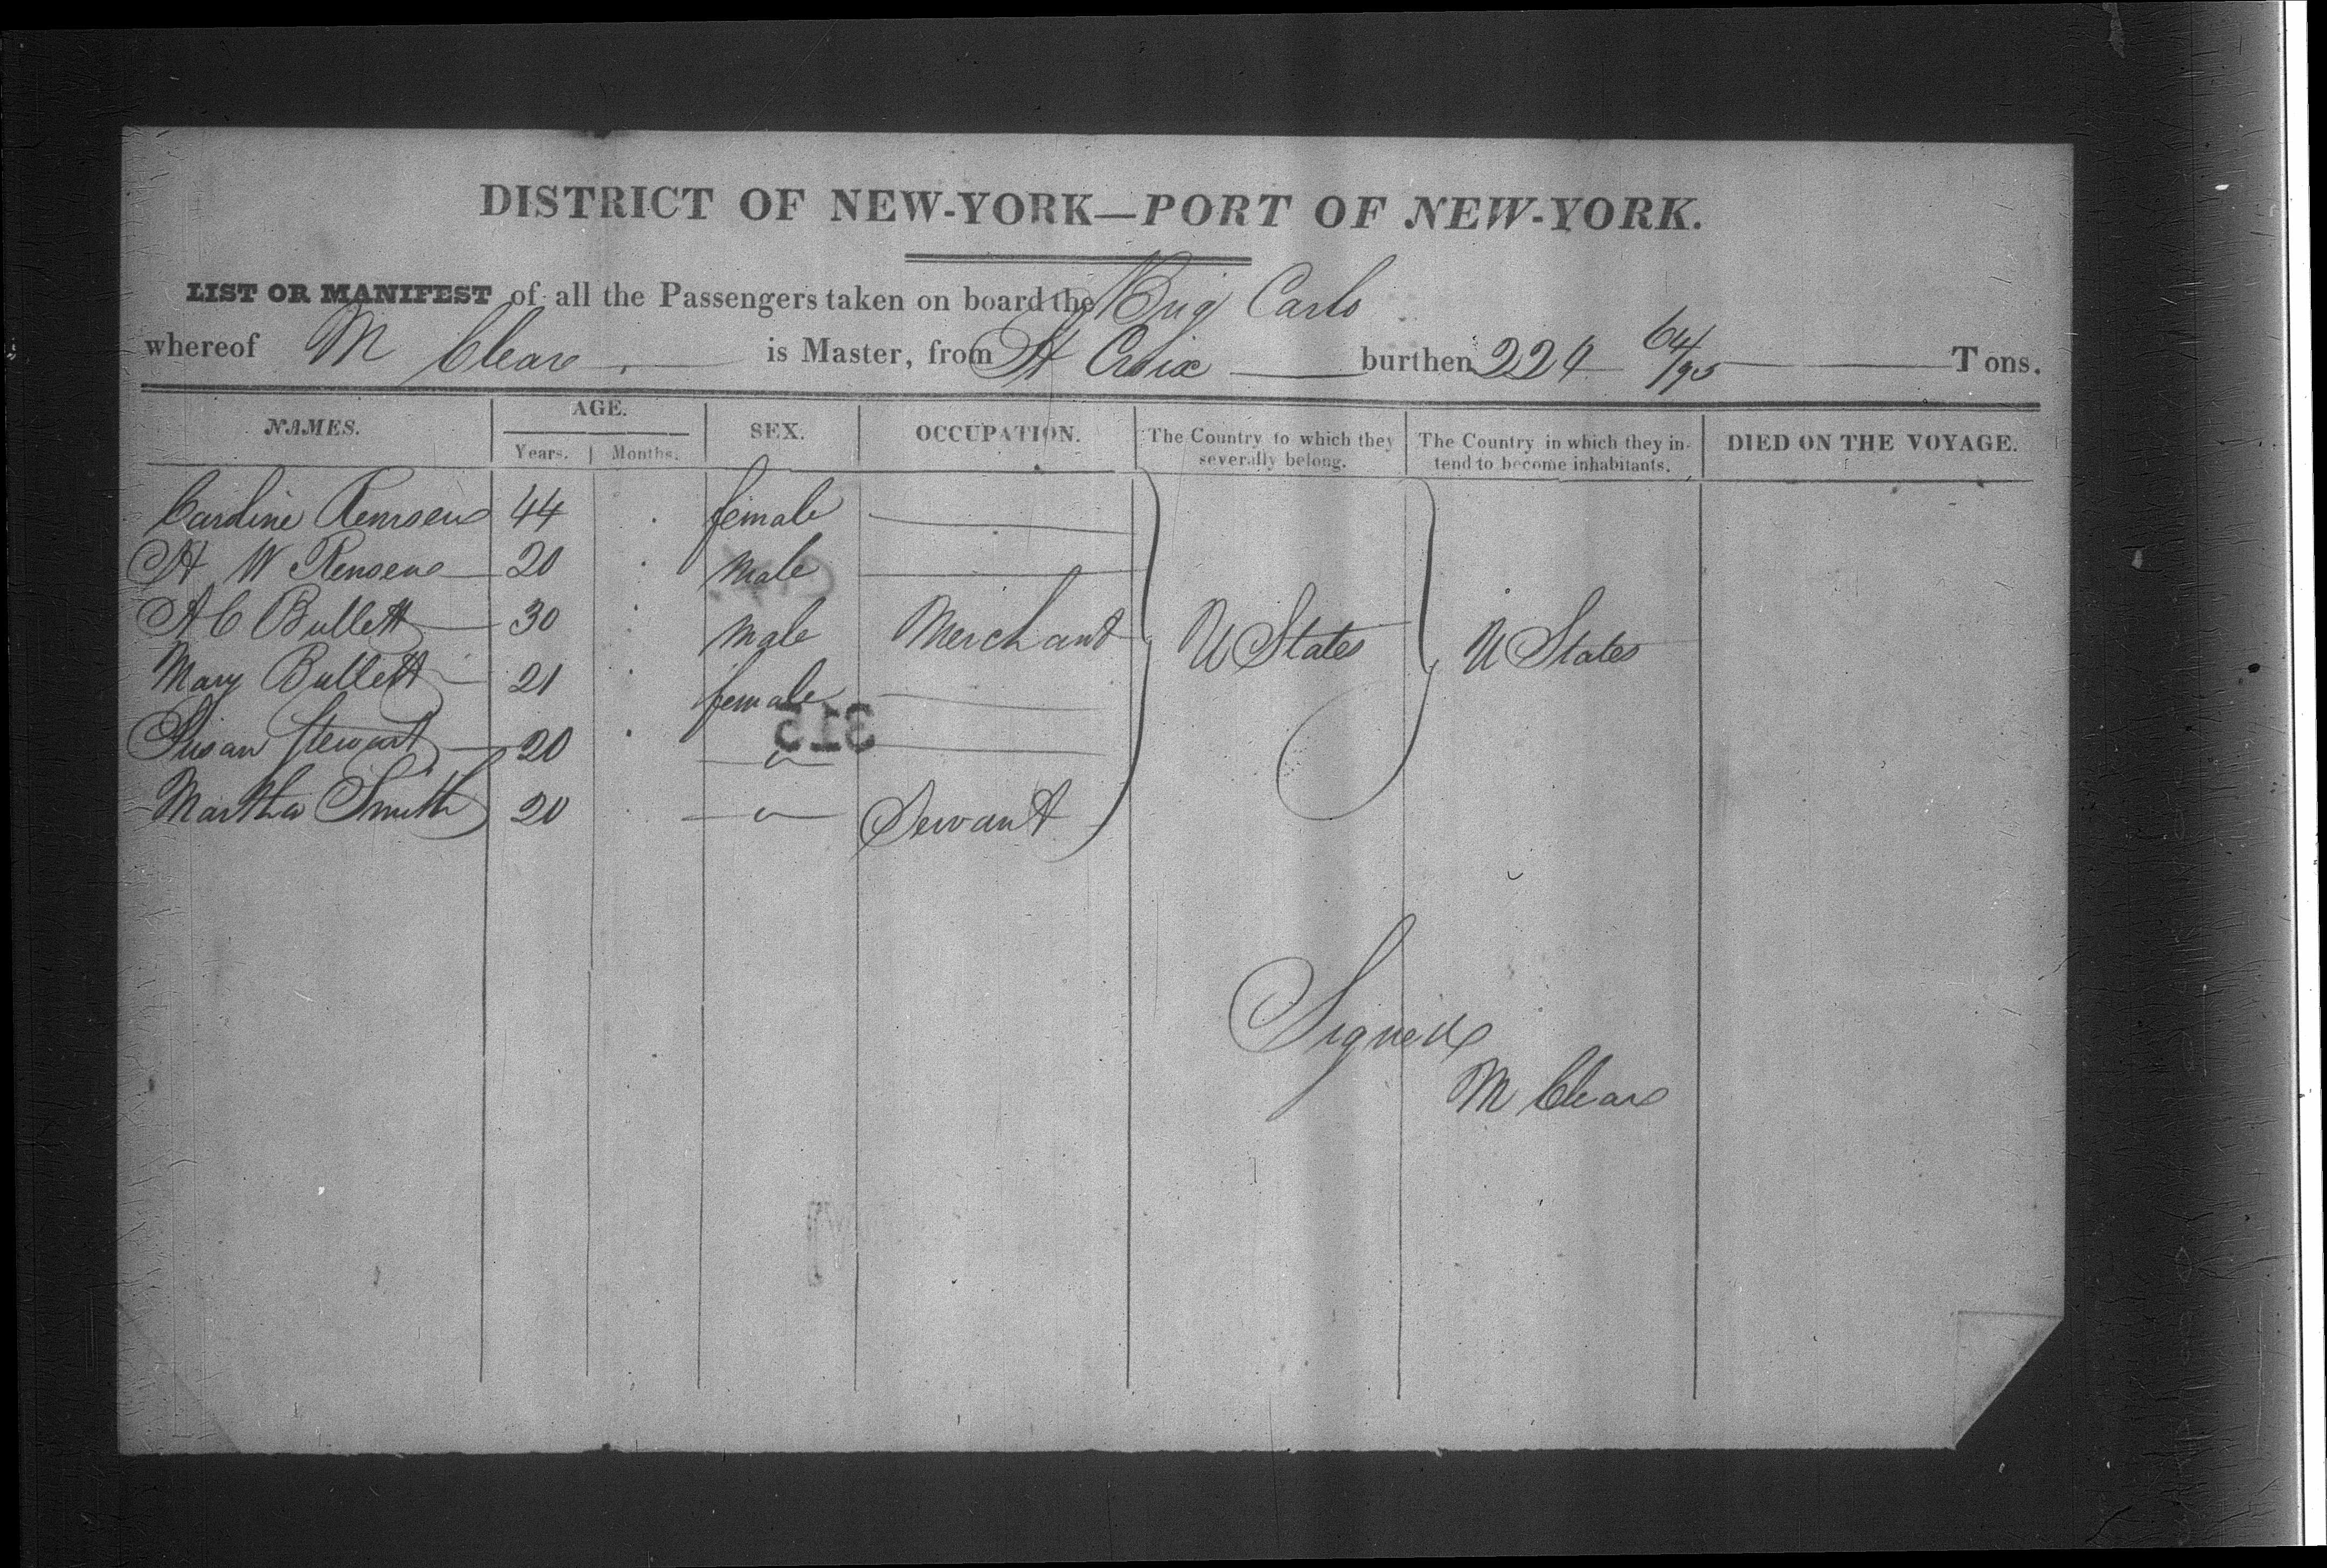 DISTRICT OF NEW-YORK—PORT OF NEW-YORK.
LIST OR MANIFEST of all the Passengers taken on board the Brig Carlo
whereof M Cleare is Master, from St Croix burthen 224 64/95 Tons.
NAMES. AGE. SEX. OCCUPATION. The Country to which they severally belong. The Country in which they intend to become inhabitants. DIED ON THE VOYAGE.
Years. Months.
Caroline Remsen 44 female
H W Remsen 20 male
A C Bullett 30 male Merchant U States U States
Mary Bullett 21 female
Susan Stewart 20 "
Martha Smith 20 " Servant
Signed
M Cleare